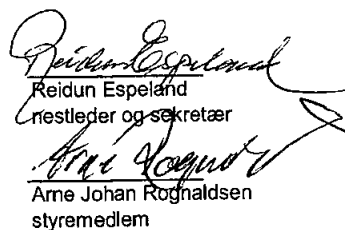 Reidun Espeland
Reidun Espeland
nestleder og sekretær
Arne Rognald
Arne Johan Rognaldsen
styremedlem